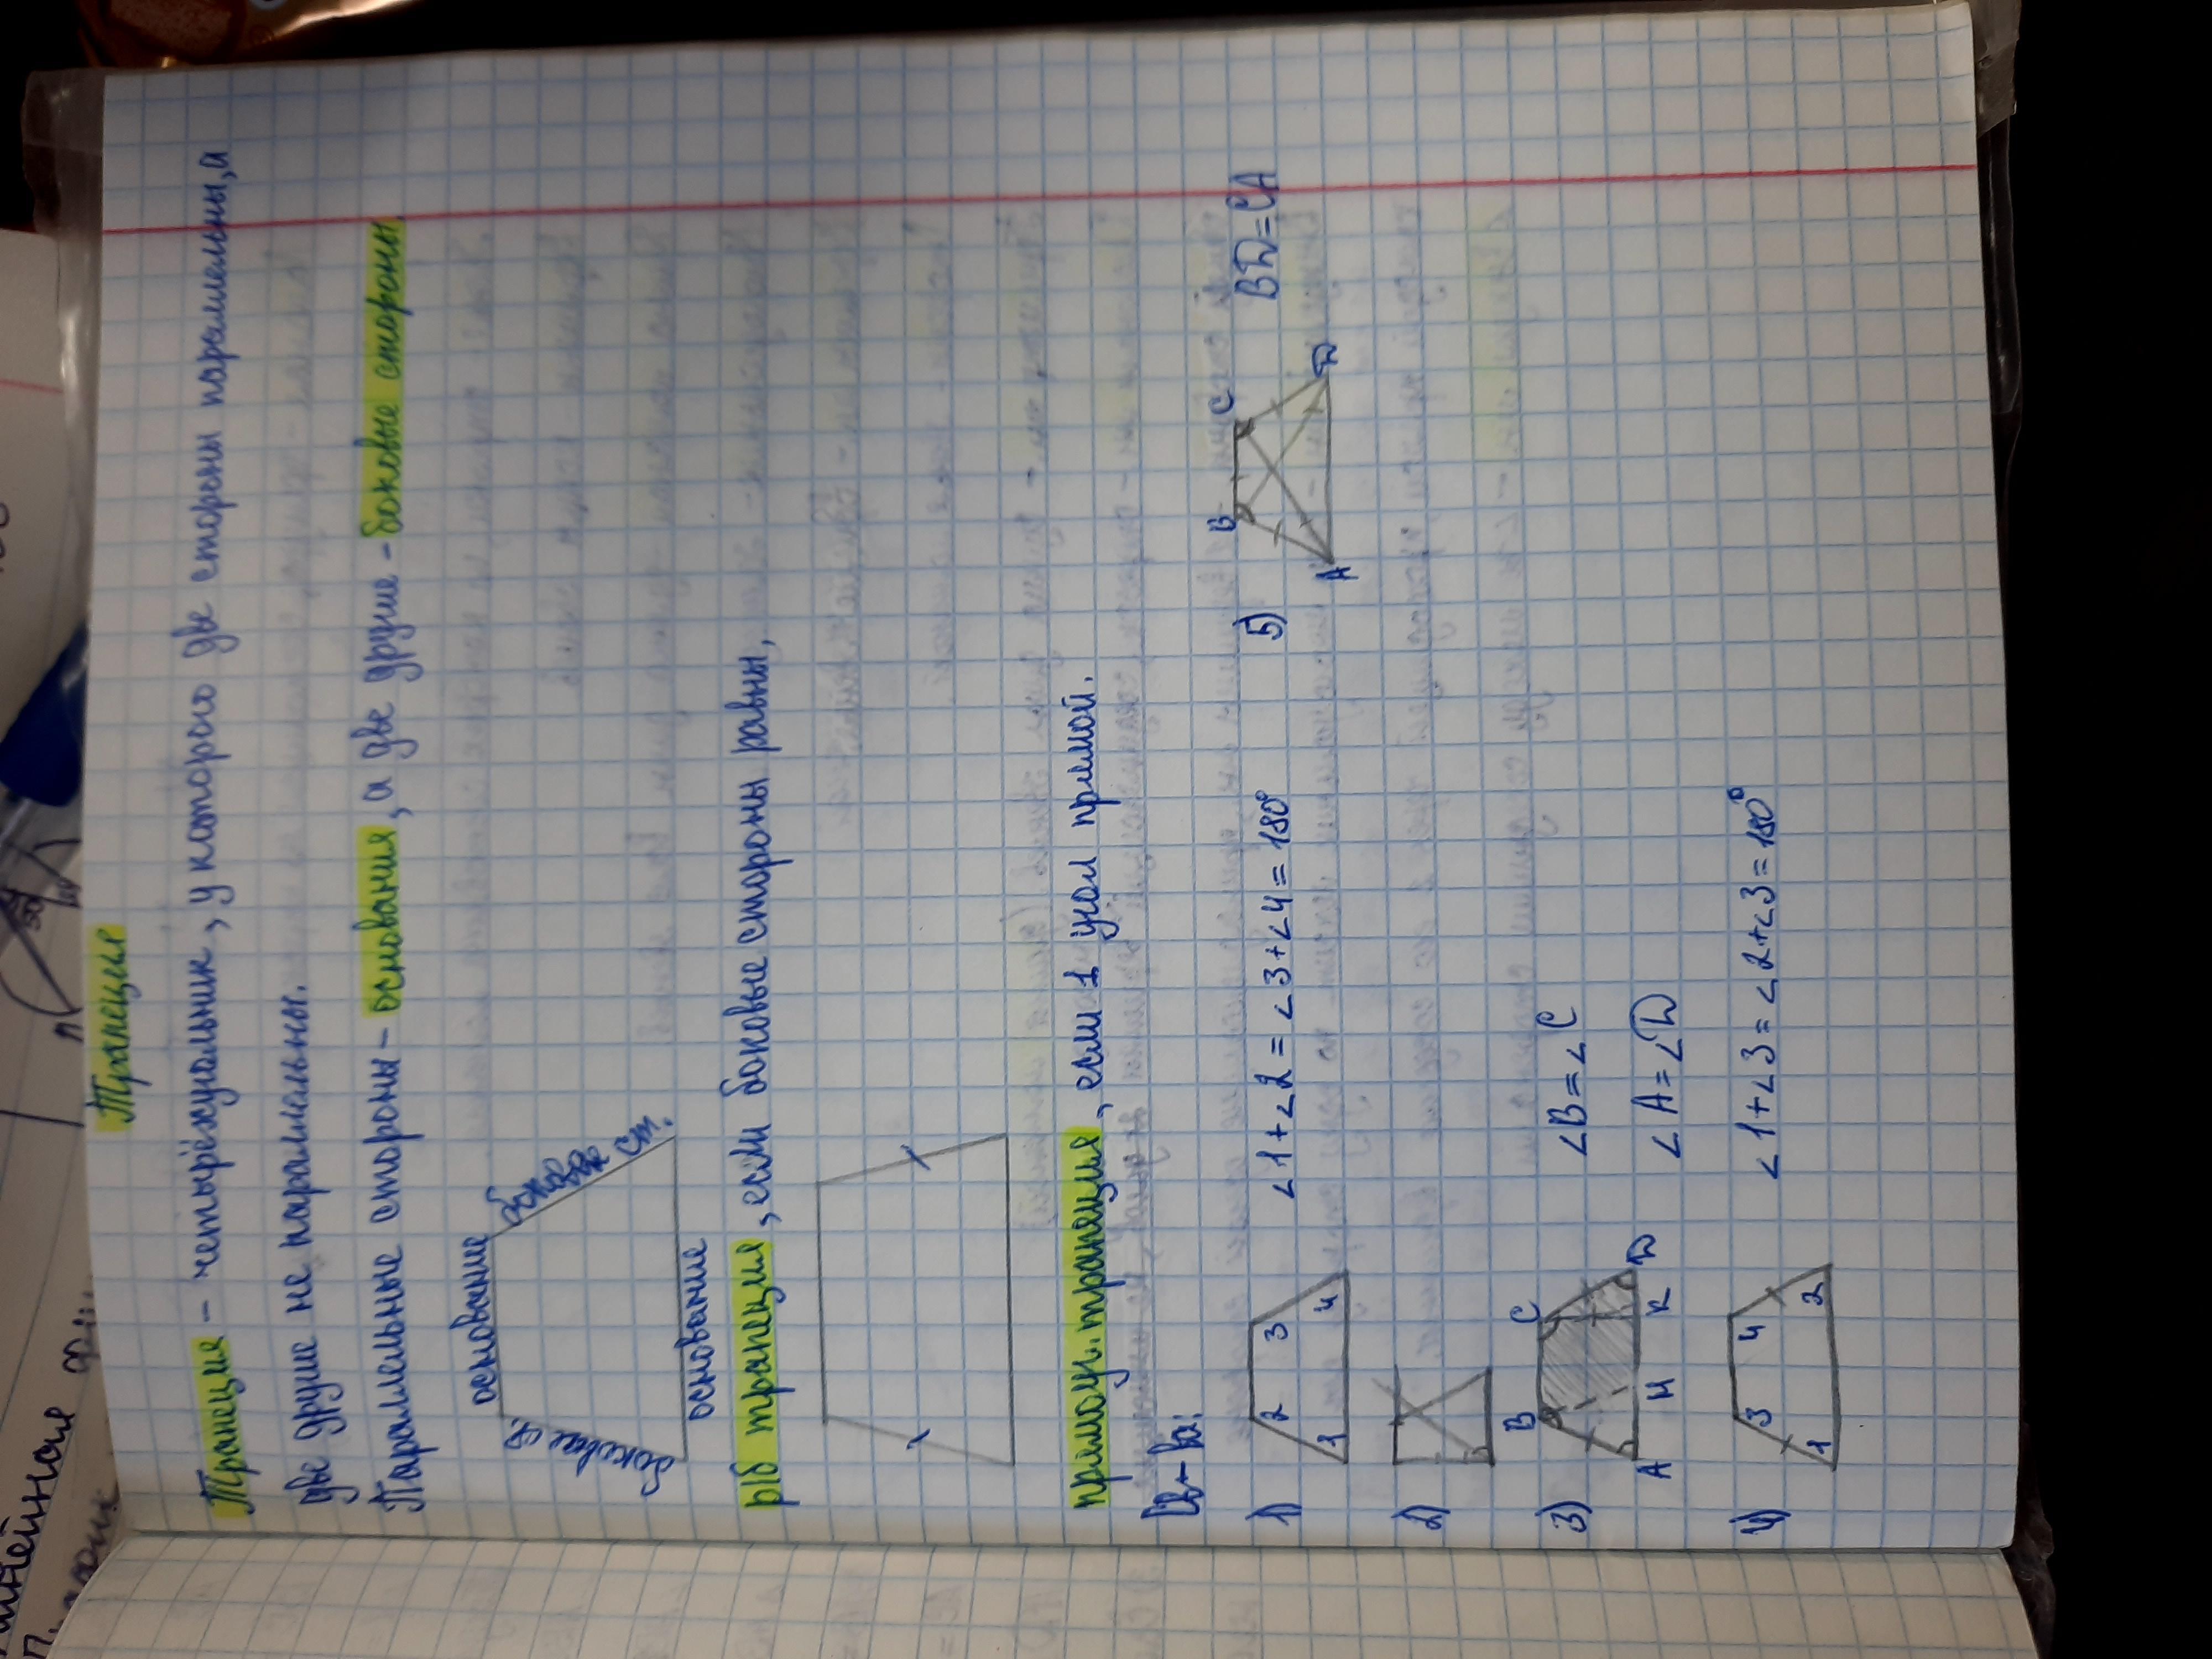 Трапеция
Трапеция - четырёхугольник, у которого две стороны параллельны, а
две другие не параллельны.
Параллельные стороны - основания, а две другие - боковые стороны.
основание
боковая ст.
боковая
основание
р/б трапеция, если боковые стороны равны,
прямоуг. трапеция, если 1 угол прямой.
Св-ва:
1) 1 2 3 4 ∠1+∠2=∠3+∠4=180°
2)
3) A B C D H K ∠B=∠C
∠A=∠D
4) 1 3 4 2 ∠1+∠3=∠2+∠3=180°
5) A B C D BD=CA